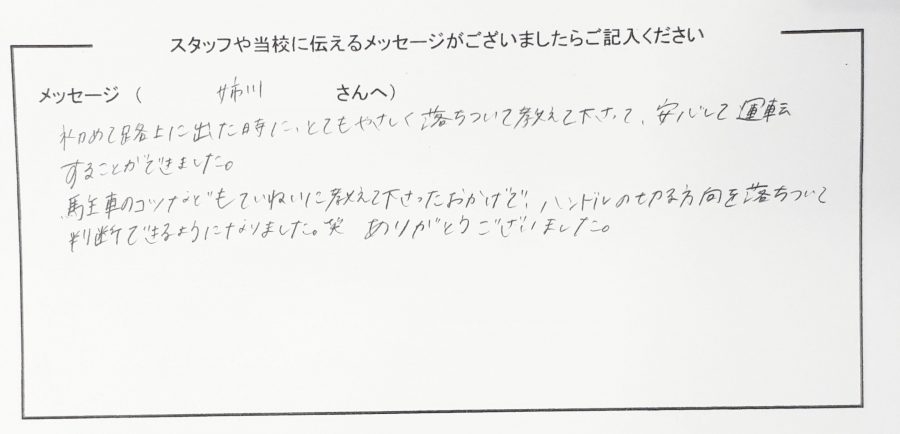 スタッフや当校に伝えるメッセージがございましたらご記入ください
メッセージ ( 姉川 さんへ)
初めて路上に出た時に、とてもやさしく落ちついて教えて下さって、安心して運転
することができました。
駐車のコツなどもていねいに教えて下さったおかげで、ハンドルの切る方向を落ちついて
判断できるようになりました。笑 ありがとうございました。